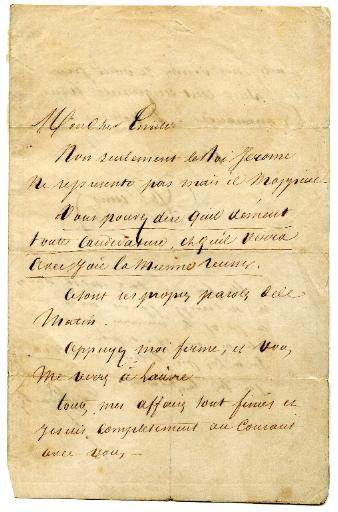 Mon cher Emile
Non seulement le Roi Jerome
ne represente pas mais il m'appuie.
Vous pouvez dire qu'il dément
toute candidature, et qu'il verra
avec joie la mienne reussir.
ce sont ses propres paroles de ce
Matin.
Appuyez moi ferme, et vous
me verrez à
tous mes affaires sont finies et
je suis completement au courant
avec vous, —